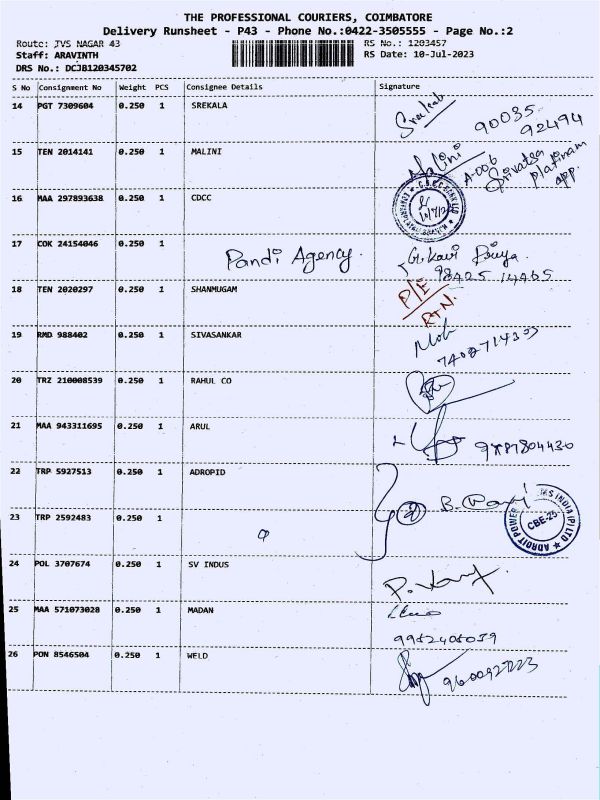 THE PROFESSIONAL COURIERS, COIMBATORE
Delivery Runsheet - P43 - Phone No.:0422-3505555 - Page No.:2
Route: TVS NAGAR 43 RS No.: 1203457
Staff: ARAVINTH RS Date: 10-Jul-2023
DRS No.: DCJB120345702
S No Consignment No Weight PCS Consignee Details Signature
14 PGT 7309604 0.250 1 SREKALA Sreekala 90035
92494
15 TEN 2014141 0.250 1 MALINI Malini A-006 Srivatsa platinam app.
16 MAA 297893638 0.250 1 CDCC
17 COK 24154046 0.250 1 Pandi Agency. G.Kavi Priya
98425 14465
18 TEN 2020297 0.250 1 SHANMUGAM P/E
RTN.
19 RMD 988402 0.250 1 SIVASANKAR Mob
20 TRZ 210008539 0.250 1 RAHUL CO
21 MAA 943311695 0.250 1 ARUL
22 TRP 5927513 0.250 1 ADROPID 2 B. Ravi
ADROIT POWER INDIA (P) LTD
CBE-25
23 TRP 2592483 0.250 1
24 POL 3707674 0.250 1 SV INDUS
25 MAA 571073028 0.250 1 MADAN
9952406059
26 PON 8546504 0.250 1 WELD